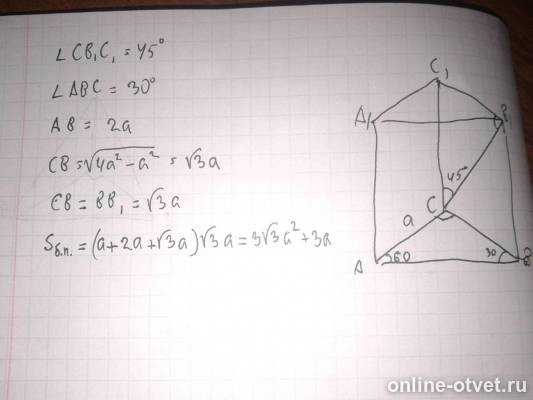 ∠CB₁C₁ = 45°
∠ABC = 30°
AB = 2a
CB = √4a² - a² = √3a
CB = BB₁ = √3a
Sб.п. = (a + 2a + √3a)√3a = 3√3a² + 3a
C₁
A₁
B₁
45°
C
a
A
60
30
B
online-otvet.ru